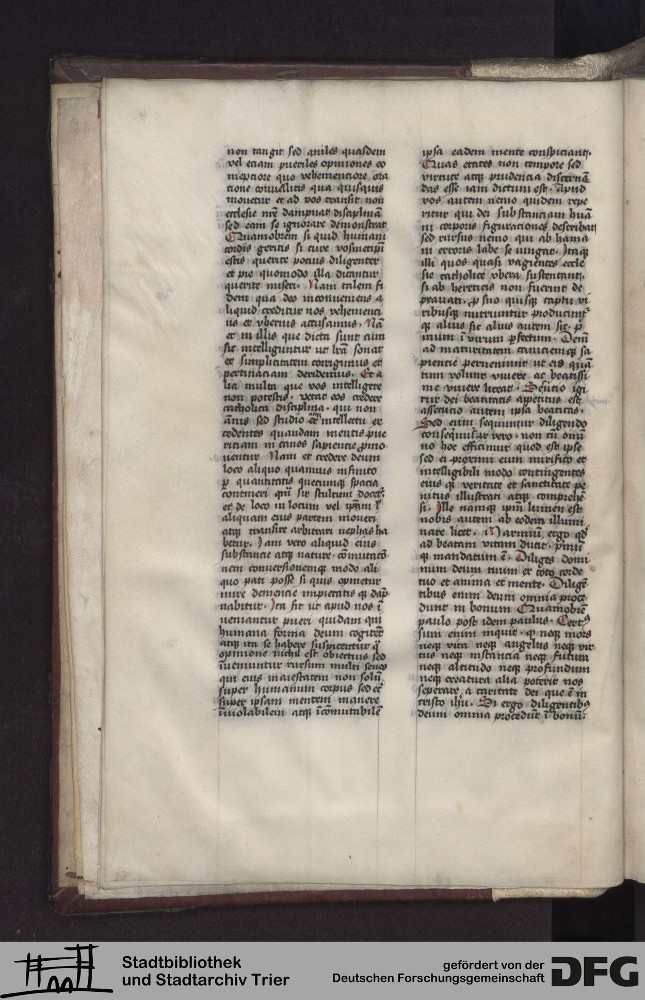 non tangit sed aniles quasdem
vel etiam pueriles opiniones eo
ineptiore quo vehementiore ora
tione convellitis qua quisquis
movetur et ad vos transit non
ecclesie nr̄e dampnat disciplinā
sed eam se ignorare demonstrat
Quamobrem si quid humani
cordis geritis si cure vosmetipsi
estis querite pocius diligenter
et pie quomodo illa dicantur
querite miseri. Nam talem fi
dem qua deo inconueniens a
liquid creditur nos vehemenci
us et vberius accusamus. Nā
et in illis que dicta sunt cum
sic intelliguntur ut lr̄a sonat
et simplicitatem corrigimus et
pertinaciam deridemus. Et a
lia multa que vos intelligere
non potestis. vetat eos credere
catholica disciplina. qui non
annis sed studio atq̄ intellectu ex
cedentes quandam mentis pue
riciam in canos sapiencie pmo
uentur Nam et credere deum
loco aliquo quamuis infinito
p quantitatis quecumq̄ spacia
contineri qm̄ sit stultum docet.
et de loco in locum vel ipsum l̄
aliquam eius partem moueri
atq̄ transire arbitrari nephas ha
betur. Iam vero aliquid eius
substancie atq̄ nature. cōmutacō
nem conuersionemq̄ modo ali
quo pati posse si quis opinetur
mire demencie impietatis q̄ dāp
nabitur. Ita fit ut apud nos ī
ueniantur pueri quidam qui
humana forma deum cogitēt
atq̄ ita se habere suspicentur q̄
opinione nichil est obiectius sed
īueniuntur rursum multi senes
qui eius maiestatem non solū
super humanum corpus sed et̄
super ipsam mentem manere
īuiolabilem atq̄ īcomutabilē
ipsa eadem mente conspiciant.
Quas etates non tempore sed
virtute atq̄ prudencia discernā
das esse iam dictum est. Apud
vos autem nemo quidem repe
ritur qui dei substanciam huā
ni corporis figuraciones describat
sed rursus nemo qui ab huma
ni erroris labe se iungat. Itaq̄
illi quos quasi vagientes eccle
sie catholice vbera sustentant.
si ab hereticis non fuerint de
pravati. p suo quisq̄ captu vi
ribusq̄ nutriuntur producunt
q̄ alius sic alius autem sic. p
mum ī virum pfectum. Deīn
ad maturitatem caniciemq̄ sa
piencie perveniunt ut eis quā
tum volunt viuere ac beatissi
me viuere liceat. Secutio igi
tur dei beatitatis apetitus est
assecucio autem ipsa beatitas.
Sed eum sequimur diligendo
consequimur vero. non cū omī
no hoc efficimur quod est ipse
sed ei proximi eum mirifico et
intelligibili modo contingentes
eius q̄ veritate et sanctitate pe
nitus illustrati atq̄ comprehē
si. Ille namq̄ ipm̄ lumen est
nobis autem ab eodem illumi
nari licet. Maximū ergo qd̄
ad beatam vitam ducit. pmū
q̄ mandatum ē. Diliges domi
num deum tuum ex toto corde
tuo et anima et mente. Diligē
tibus enim deum omnia proce
dunt in bonum Quamobrē
paulo post idem paulus. Cert9
sum enim inquit. q̄ neq̄ mors
neq̄ vita neq̄ angelus neq̄ vir
tus neq̄ instancia neq̄ futura
neq̄ altitudo neq̄ profundum
neq̄ creatura alia poterit nos
seperare a caritate dei que ē in
cristo ihu. Si ergo diligentib9
deum omnia procedūt ī bonū.
Stadtbibliothek
und Stadtarchiv Trier
gefördert von der
Deutschen Forschungsgemeinschaft
DFG